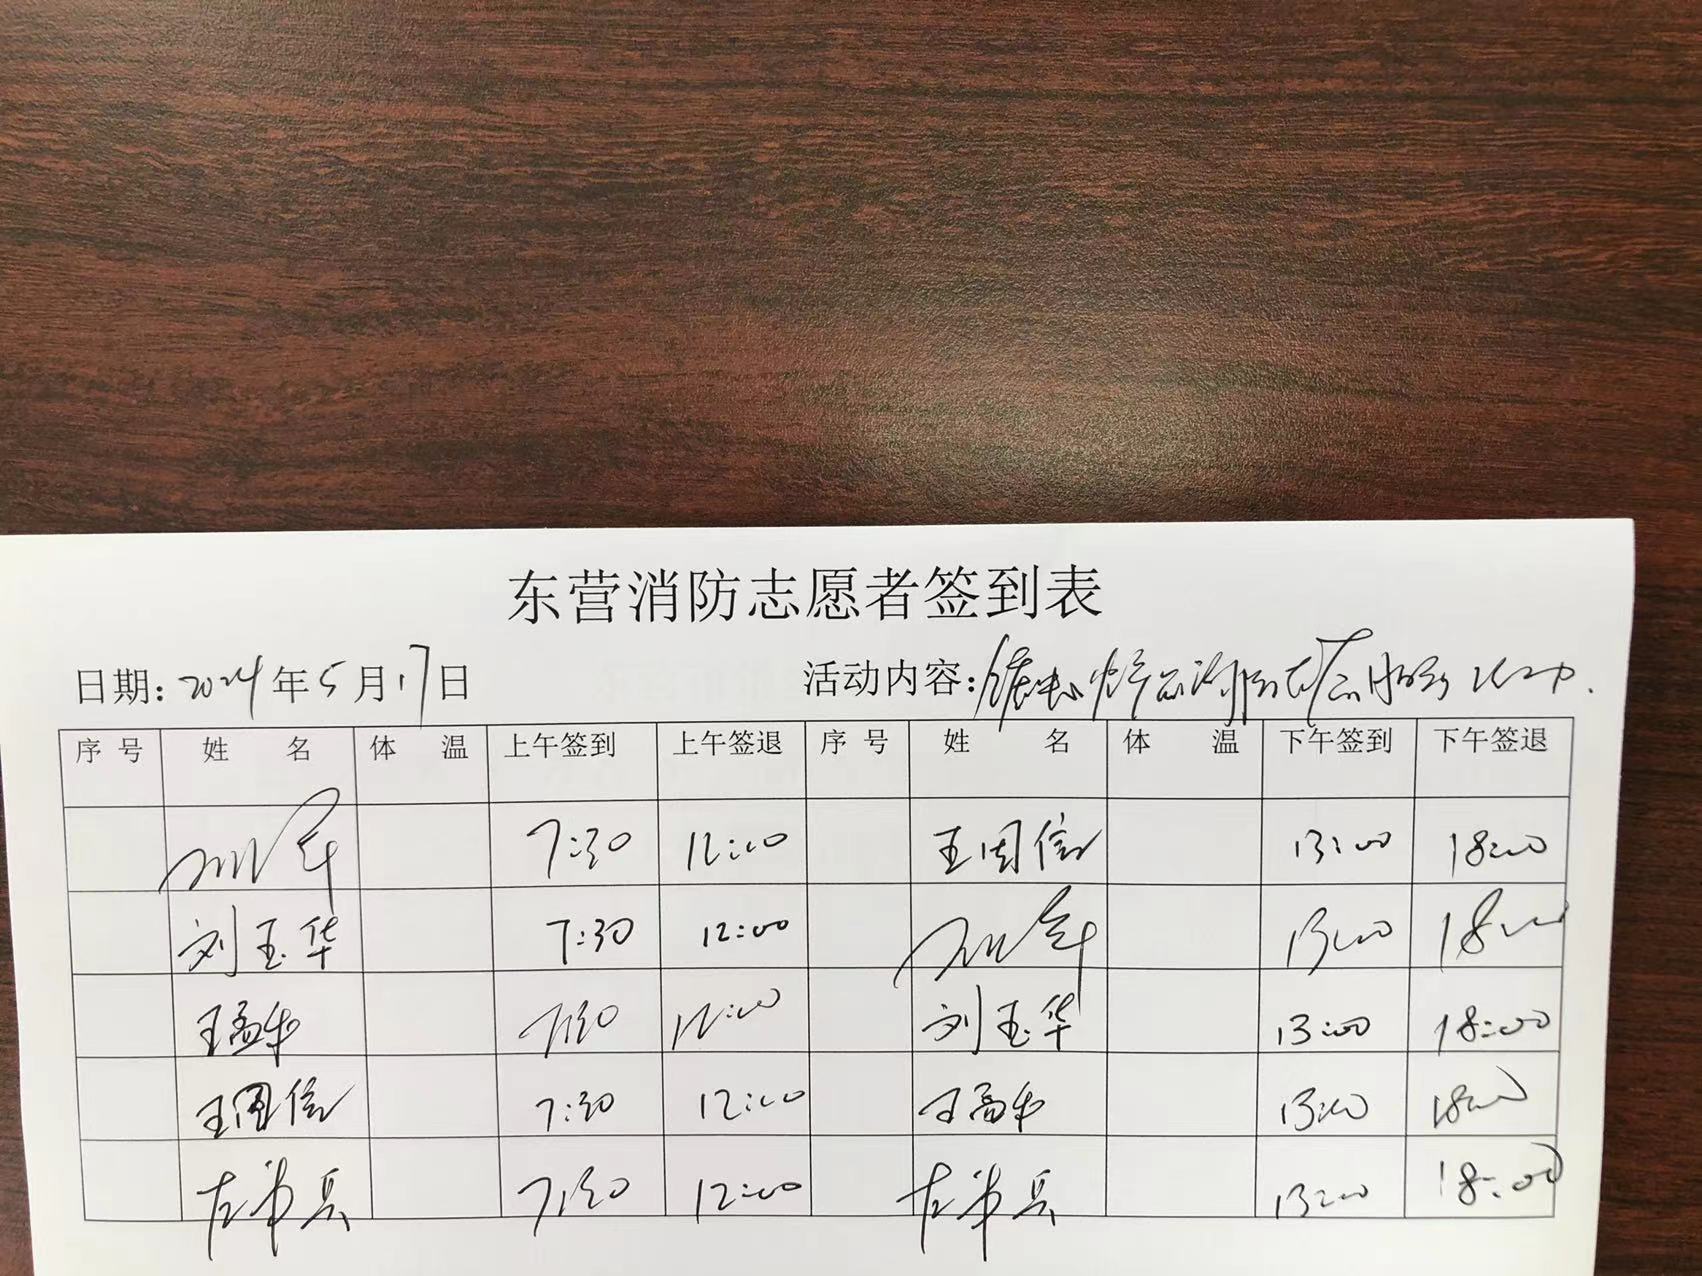 东营消防志愿者签到表
日期: 2024年5月17日 活动内容:
序号 姓名 体温 上午签到 上午签退 序号 姓名 体温 下午签到 下午签退
7:30 12:00 王国信 13:00 18:00
刘玉华 7:30 12:00 13:00 18:00
王孟华 7:30 12:00 刘玉华 13:00 18:00
王国信 7:30 12:00 王孟华 13:00 18:00
7:30 12:00 13:00 18:00